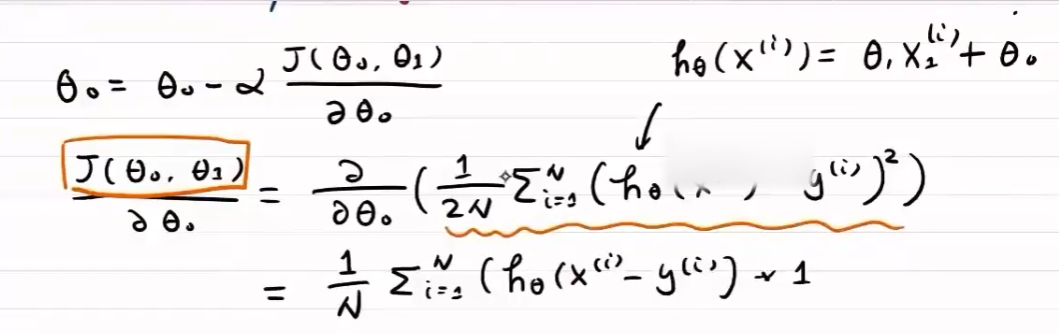 θ₀ = θ₀ - α J(θ₀, θ₁) / ∂θ₀
h_θ(x⁽ⁱ⁾) = θ₁ x₁⁽ⁱ⁾ + θ₀
J(θ₀, θ₁) / ∂θ₀ = ∂/∂θ₀ ( 1/2N Σᵢ₌₁ᴺ ( h_θ( y⁽ⁱ⁾ )² )
= 1/N Σᵢ₌₁ᴺ ( h_θ (x⁽ⁱ⁾ - y⁽ⁱ⁾) * 1